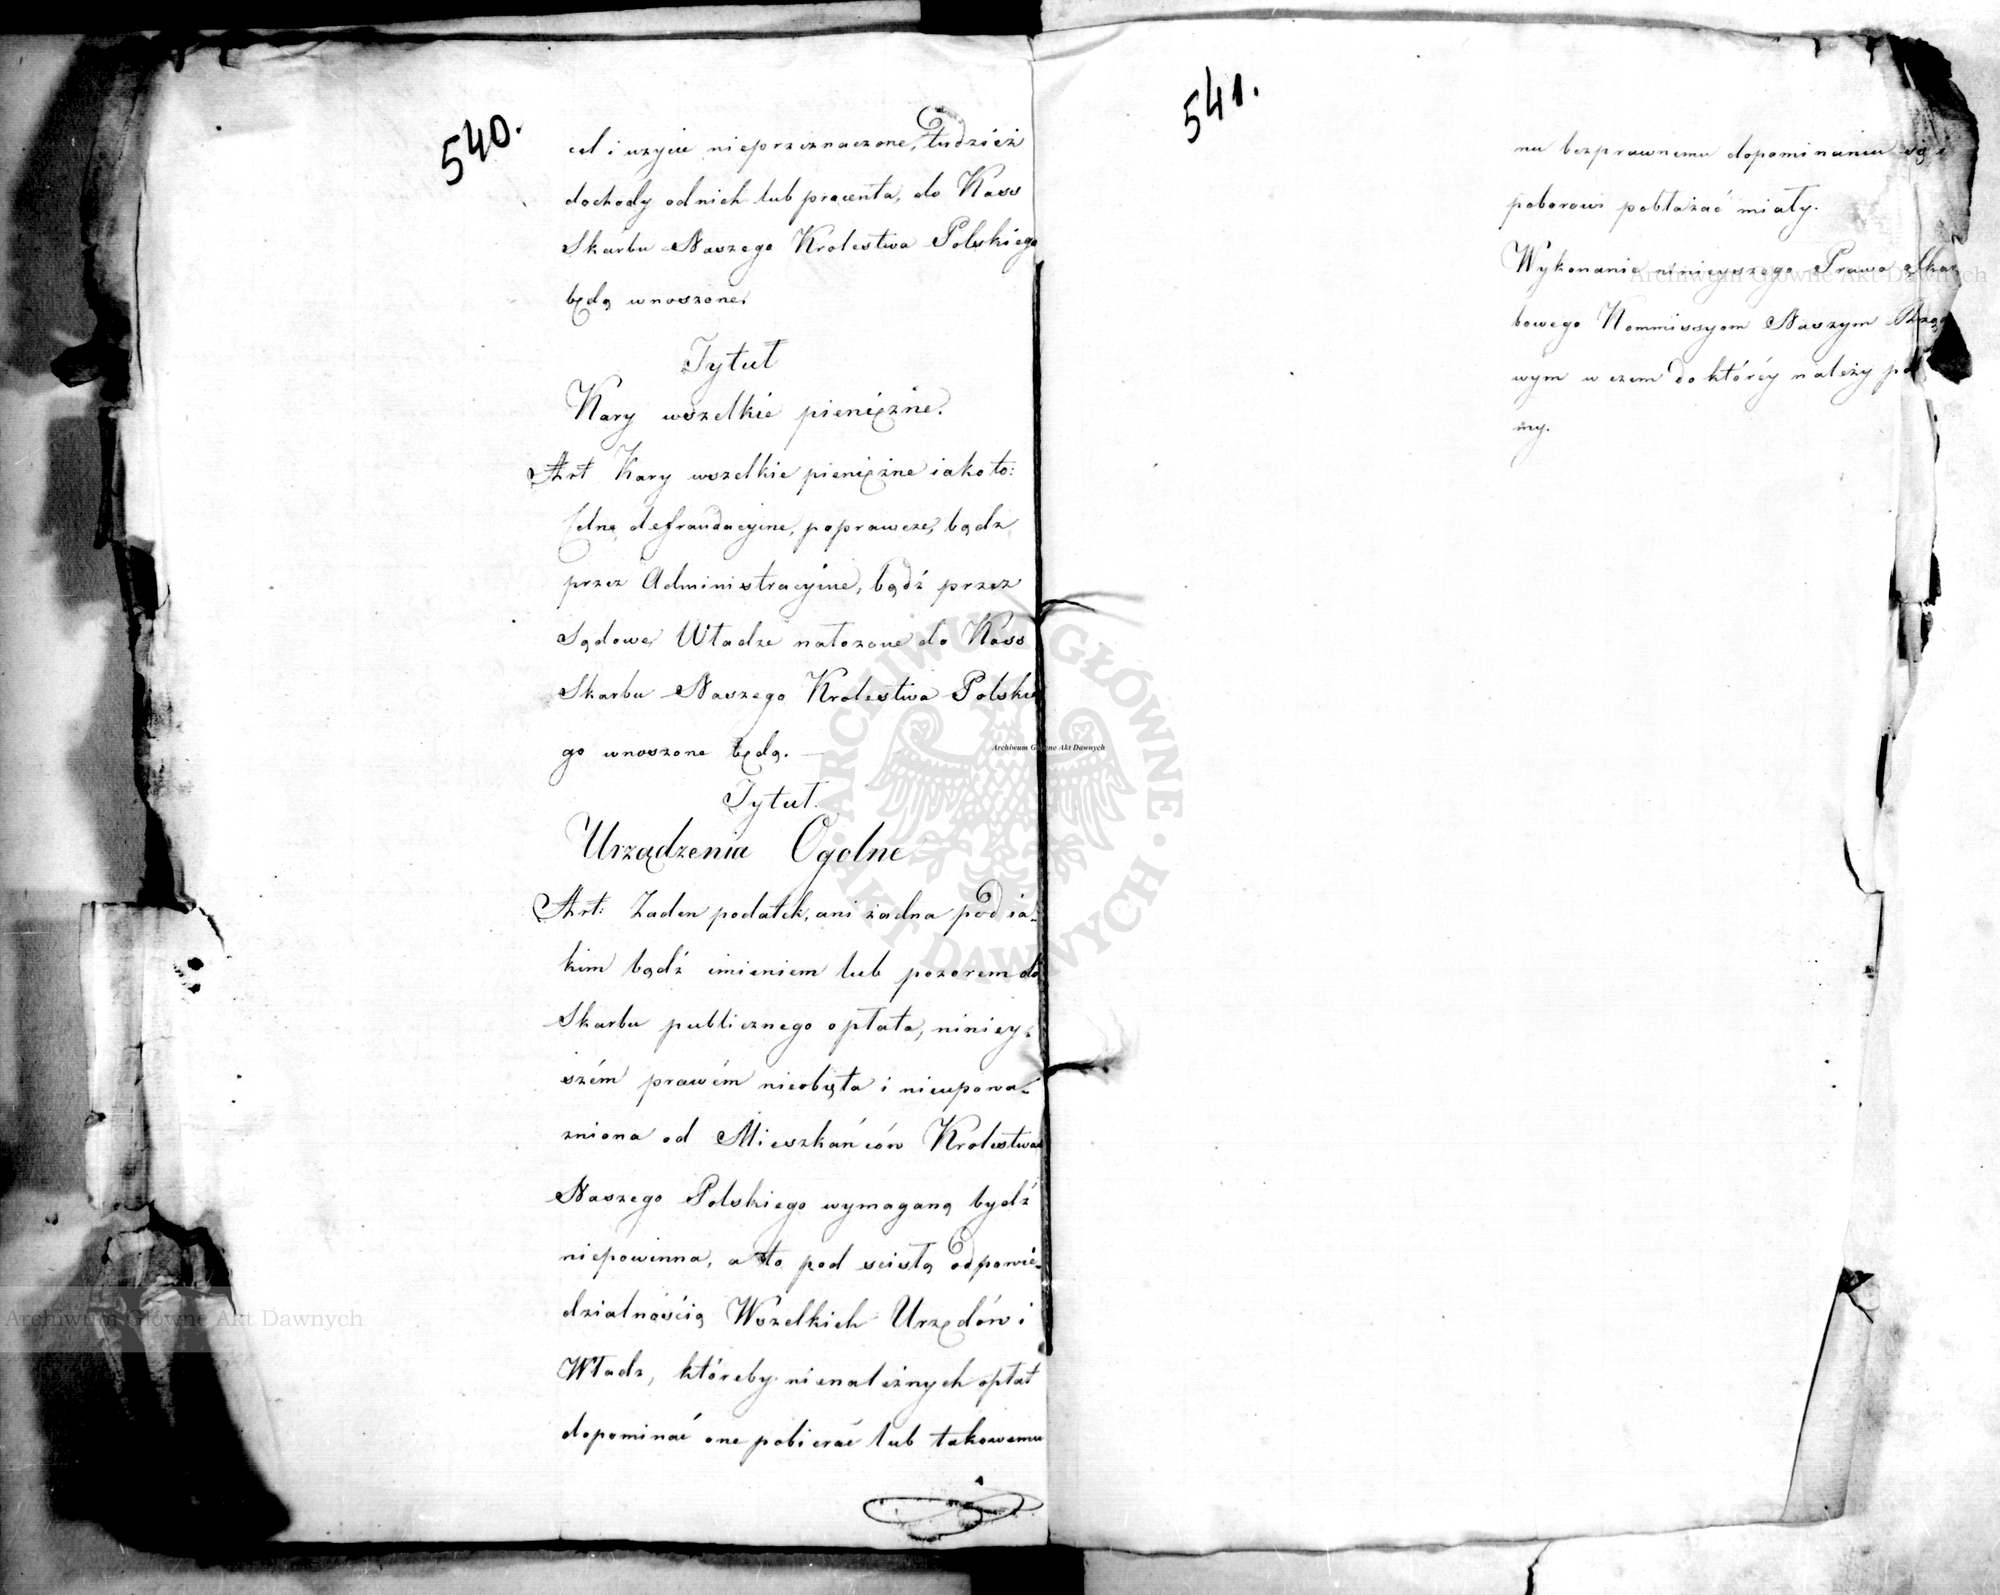 540.
cel i uzycie nieprzeznaczone, tudzież
dochody od nich lub procenta, do Kass
Skarbu Naszego Krolestwa Polskiego
będą wnoszone.
Tytuł
Kary wszelkie pieniężne.
Art Kary wszelkie pieniężne iako to:
defraudacyine, poprawcze, bądz
przez Administracyine, bądź przez
Sądowe Władze nałozone do Kass
Skarbu Naszego Krolestwa Polskie
go wnoszone będą. —
Tytuł.
Urządzenia Ogolne
Art: Zaden podatek, ani żadna pod ia-
kim bądź imieniem lub pozorem do
Skarbu publicznego opłata, niniey-
szém prawém nieobięta i nieupowa-
zniona od Mieszkańców Krolestwa
Naszego Polskiego wymaganą bydź
niepowinna, a to pod scisłą odpowie-
dzialnością Wszelkich Urzędów i
Władz, któreby nienależnych opłat
dopominać one pobierać lub takowemu
541.
nu bezprawnemu dopominaniu się i
poborowi pobłażać miały.
Wykonanie ninieyszego Prawa Skar
bowego Kommissyom Naszym Rzą
wym w czem do któréy należy po
my.
Archiwum Główne Akt Dawnych
Archiwum Główne Akt Dawnych
Archiwum Główne Akt Dawnych
ARCHIWUM GŁÓWNE · AKT DAWNYCH ·